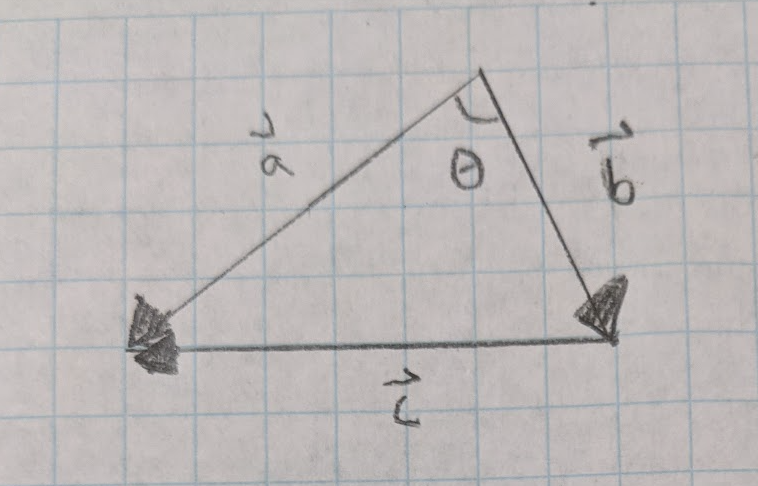 a⃗
θ
b⃗
c⃗